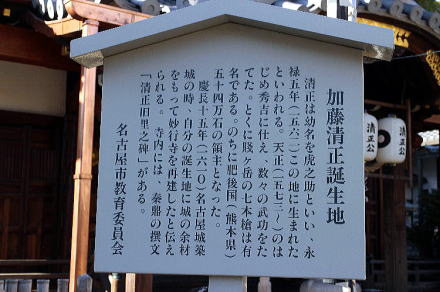 加藤清正誕生地
清正は幼名を虎之助といい、永
禄五年(一五六二)この地に生まれた
といわれる。天正(一五七三~)のは
じめ秀吉に仕え、数々の武功をた
てた。とくに賤ヶ岳の七本槍は有
名である。のちに肥後国(熊本県)
五十四万石の領主となった。
慶長十五年(一六一〇)名古屋城築
城の時、自分の誕生地に城の余材
をもって妙行寺を再建したと伝え
られる。寺内には、秦鼎の撰文
「清正旧里之碑」がある。
名古屋市教育委員会
清正公
清正公